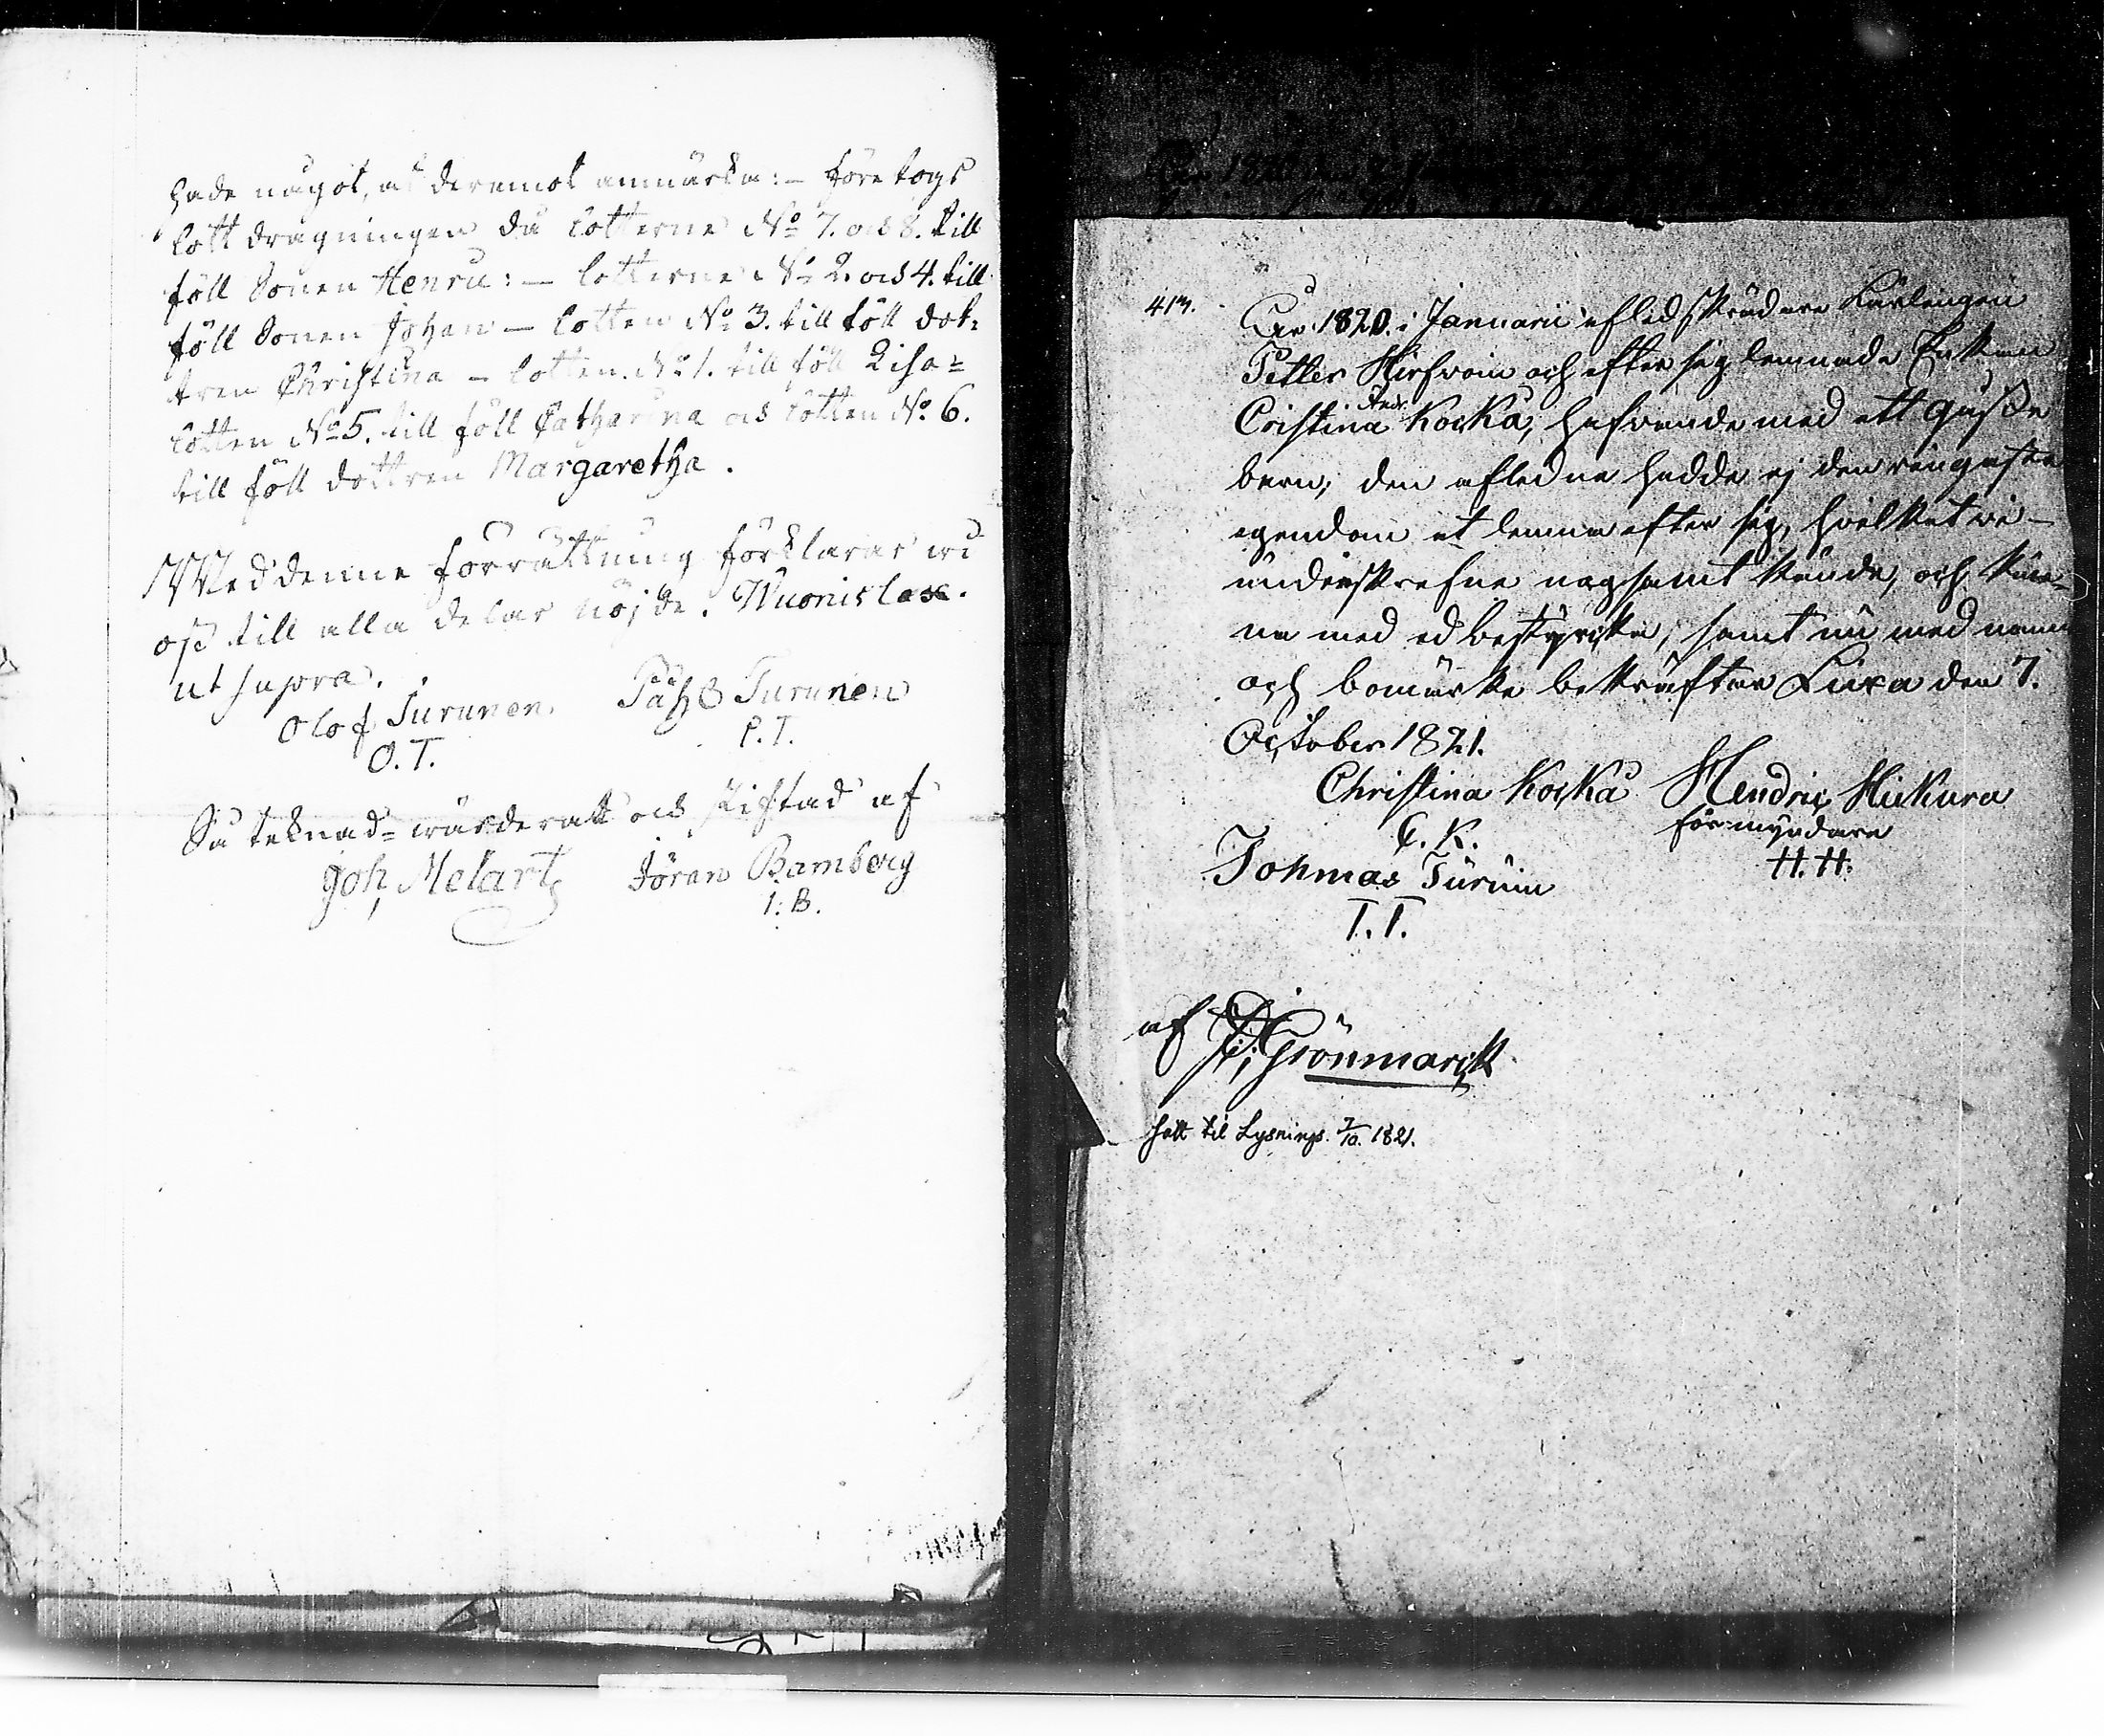 hade något, at deremot anmärka: – företogs
lott dragningen då lotterne No 7. och 8. till
föll Sonen Henric: – lotterne No 2. och 4. till
föll Sonen Johan – lotten No 3. till föll dot-
tren Christina – lotten No 1. till föll Lisa =
lotten No 5. till föll Catharina och lotten No. 6.
till föll dottren Margaretha.
Med denne förrättning förklarar wi
oss till alla delar nöjde. Wuonislax.
ut supra.
Olof Turunen. Påhl Turunen
O. T. P. T.
Så teknad = wärderatt och skiftad af
Joh, Melart Jöran Bamberg
I: B.
413.
År 1820. i Januarii afled skräddare Lärlingen
Petter Hirfwoin och efter sig lemnade Enkan
Cristina Andr. Kocka, hafvande med ett
barn, den aflednе hadde ej den ringaste
egendom at lemna efter sig, hvilket vi –
underskrefne nogsamt kände, och kun-
na med ed bestyrcka, samt nu med namn
och bomärke bekräftar Lixa den 7.
October 1821.
Christina Kocka Hendric Hickura
C. K. förmyndare
Tohmas Turuin H. H.
T. T.
af Grönmarck
satt til Lysnings 7/10. 1821.